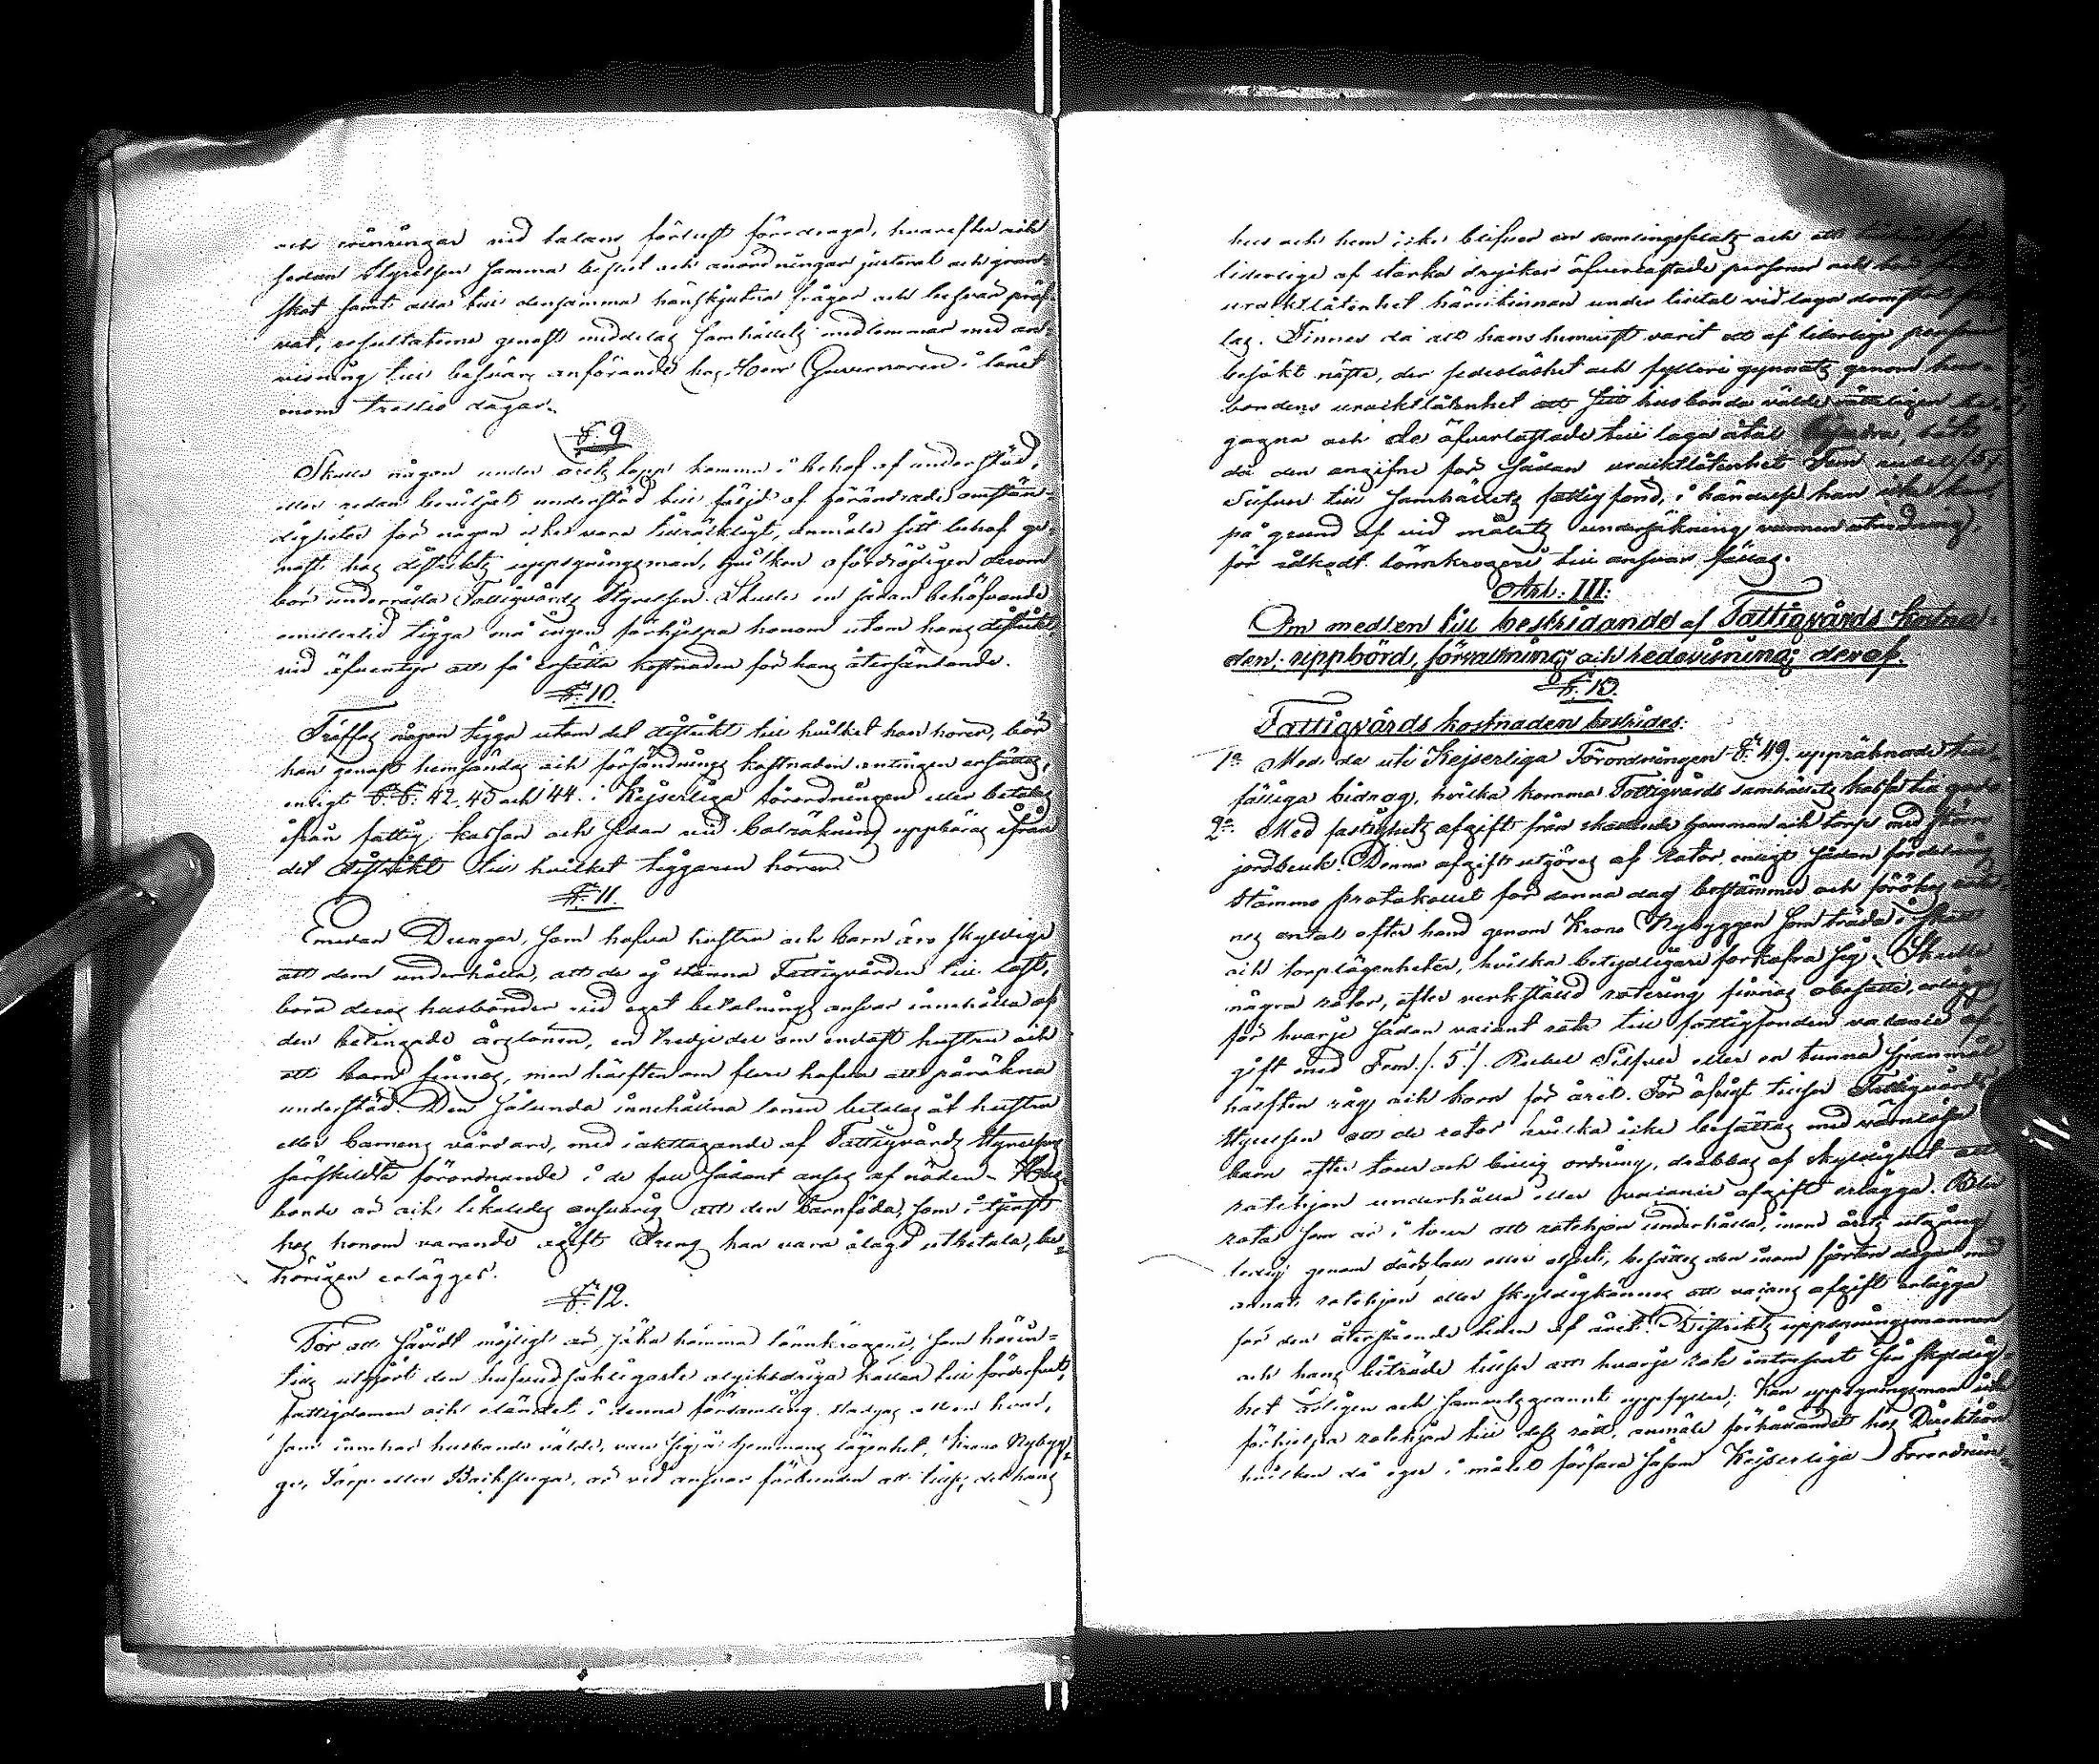 och erinringar vid balans förlust föredraga, hvarefter och
sedan Styrelsen samma beslut och anordningar justerat och gran-
skat samt alla till densamma hänskjutna frågor och besvär pröf-
vat, resultaterne genast meddelas samhällets medlemmar med an-
visning till besvärs anförande hos Herr Guvernören i länet
inom trettio dagar.
§. 9
Skulle någon under årets lopp komma i behof af understöd,
eller redan beviljat understöd till följd af förändrade omstän-
digheter för någon icke vara tillräckligt, anmäle sitt behof ge-
nast hos distriktets uppsyningsman, hvilken ofördröjligen derom
bör underrätta Fattigvårds Styrelsen. Skulle en sådan behöfvande
emellertid tigga må ingen förhjelpa honom utom hans distrikt,
vid äfventyr att få ersätta kostnaden för hans återsändande.
§. 10.
Träffas någon tigga utom det distrikt till hvilket han hörer, bör
han genast hemsändas och försändnings kostnaden antingen ersättas,
enligt §.§. 42, 43 och 44. i Kejserliga förordningen eller betalas
ifrån fattig kassan och sedan vid balräkning uppbäras ifrån
det distrikt till hvilket tiggaren hörer.
§. 11.
Emedan Drengar, som hafva hustru och barn äro skyldige
att dem underhålla, att de ej komma Fattigvården till last,
böra deras husbönder vid eget betalnings ansvar innehålla af
den betingade årslönen, en tredjedel om endast hustru och
ett barn finnes, men hälften om flere hafva att påräkna
understöd. Den sålunda innehållna lönen betalas åt hustru
eller barnens vårdare, med iakttagande af Fattigvårds Styrelsens
särskildta förordnande i de fall sådant anses af nöden. Hus-
bonde är och likaledes ansvarig att den barnföda, som i tjenst
hos honom varande ogift Dreng kan vara ålagd utbetala, be-
hörigen erlägges.
§. 12.
För att såvidt möjligt är, söka hämma lönnkrögeri, som hörin-
tills utgjort den hufvudsakligaste olycksdriga källan till förderfvet,
fattigdomen och eländet i denna församling, stadgas att en hvar,
som innehar husbonde välde, vare sig å hemmans lägenhet, Krono Nybyg-
ge, Torp eller Backstuga, är vid ansvar förbunden att tillse, det hans
hus och hem icke blifver en samlingsplats och
liderlige af starka drycker öfverlastade personer och
uraktlåtenhet härutinnan under tilltal vid laga domstol
lag. Finnes då att hans hemvist varit ett af liderlige personer
besökt näste, der sedeslöshet och fylleri gynnats genom hus-
bondens uraktlåtenhet att sitt husbonde välde
gagna och de öfverlastade till laga åtal befordra, böte
då den angifne för sådan uraktlåtenhet Fem rubel
Silfver till samhällets fattigfond, i händelse han icke kan,
på grund af vid målets undersökning vunnen utredning,
för idkadt lönnkrögeri till ansvar fällas.
Art. III:
Om medlen till bestridande af Fattigvårds kostna-
den, uppbörd, förvaltning och redovisning deraf.
§. 13.
Fattigvårds kostnaden bestrides:
1o Med de uti Kejserliga Förordningen §. 49. uppräknade till-
fälliga bidrag, hvilka komma Fattigvårds samhällets kassa till godo
2o. Med fastighets afgift från skattade hemman och torp med större
jordbruk. Denna afgift utgöres af rotor, enligt sådan fördelning
stämmo protokollet för denna dag bestämmer och förökes
nes antal efter hand genom Krono Nybyggen som träda i skatt
och torplägenheter, hvilka betydligare förkofra sig. Skulle
några rotor, efter verkställd rotering finnas obesatte, erlägges
för hvarje sådan vacant rote till fattigfonden vacance af-
gift med Fem /: 5 :/ Rubel Silfver eller en tunna spannmål
hälften råg och korn för året. För öfrigt tillser Fattigvårds
Styrelsen att de rotor hvilka icke besättas med värnlöse
barn efter tour och billig ordning, drabbas af skyldighet att
rotehjon underhålla eller vacance afgift erlägga. Blir
rota som är i tour att rotehjon underhålla, inom årets utgång
ledig genom dödsfall eller eljest, besättes den inom fjorton dagar med
annat rotehjon eller skyldigkännes att vacans afgift erlägga
för den återstående tiden af året. Distrikts uppsyningsmannen
och hans biträde tillser att hvarje rote intressent sin skyldig-
het årligen och samvetsgrannt uppfyller; Kan uppsyningsman icke
förhjelpa rotehjon till dess rätt, anmäle förhållandet hos Direktion
hvilken då eger i målet förfara såsom Kejserliga Förordnin-